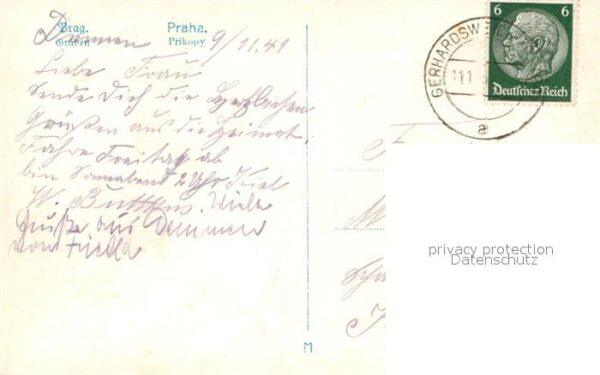 Prag. Praha.
Graben Prikopy
Dammen 9/11.41
Liebe Frau
Sende Dich die Herzlichen
Grüßen aus die Heimat
Fahre Freitag ab
bin Sonnabend 2 Uhr Kiel
W. Viele
Grüße aus Dammen
von
6 6
Deutsches Reich
GERHARDSW
11.1
a
privacy protection
Datenschutz
M.